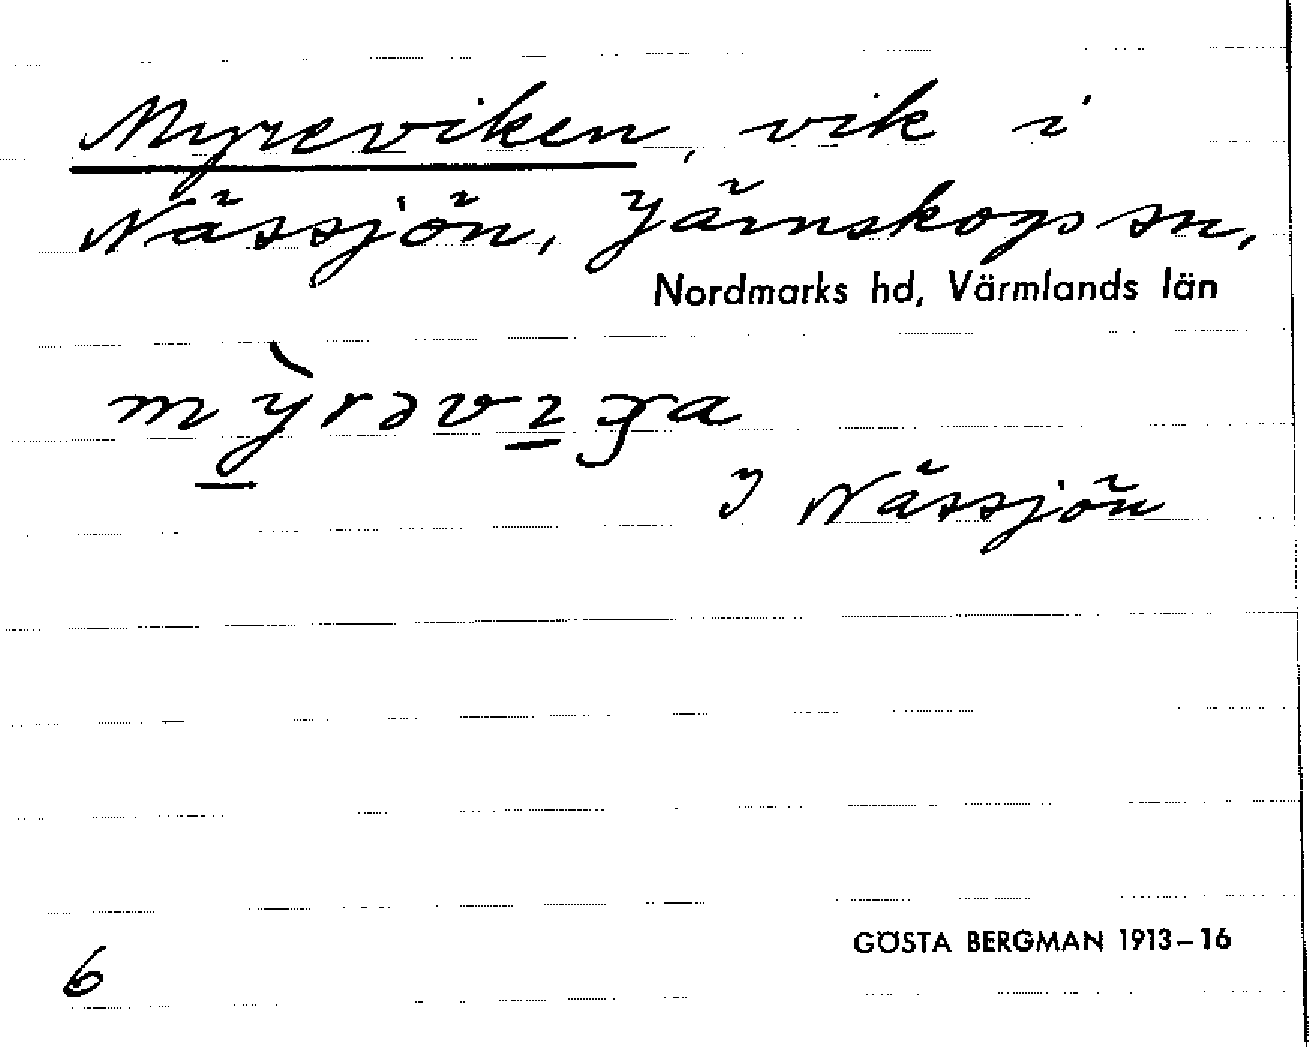 Myreviken, vik i
Nässjön, Järnskogs sn,
Nordmarks hd, Värmlands län
I Nässjön
GÖSTA BERGMAN 1913–16
6